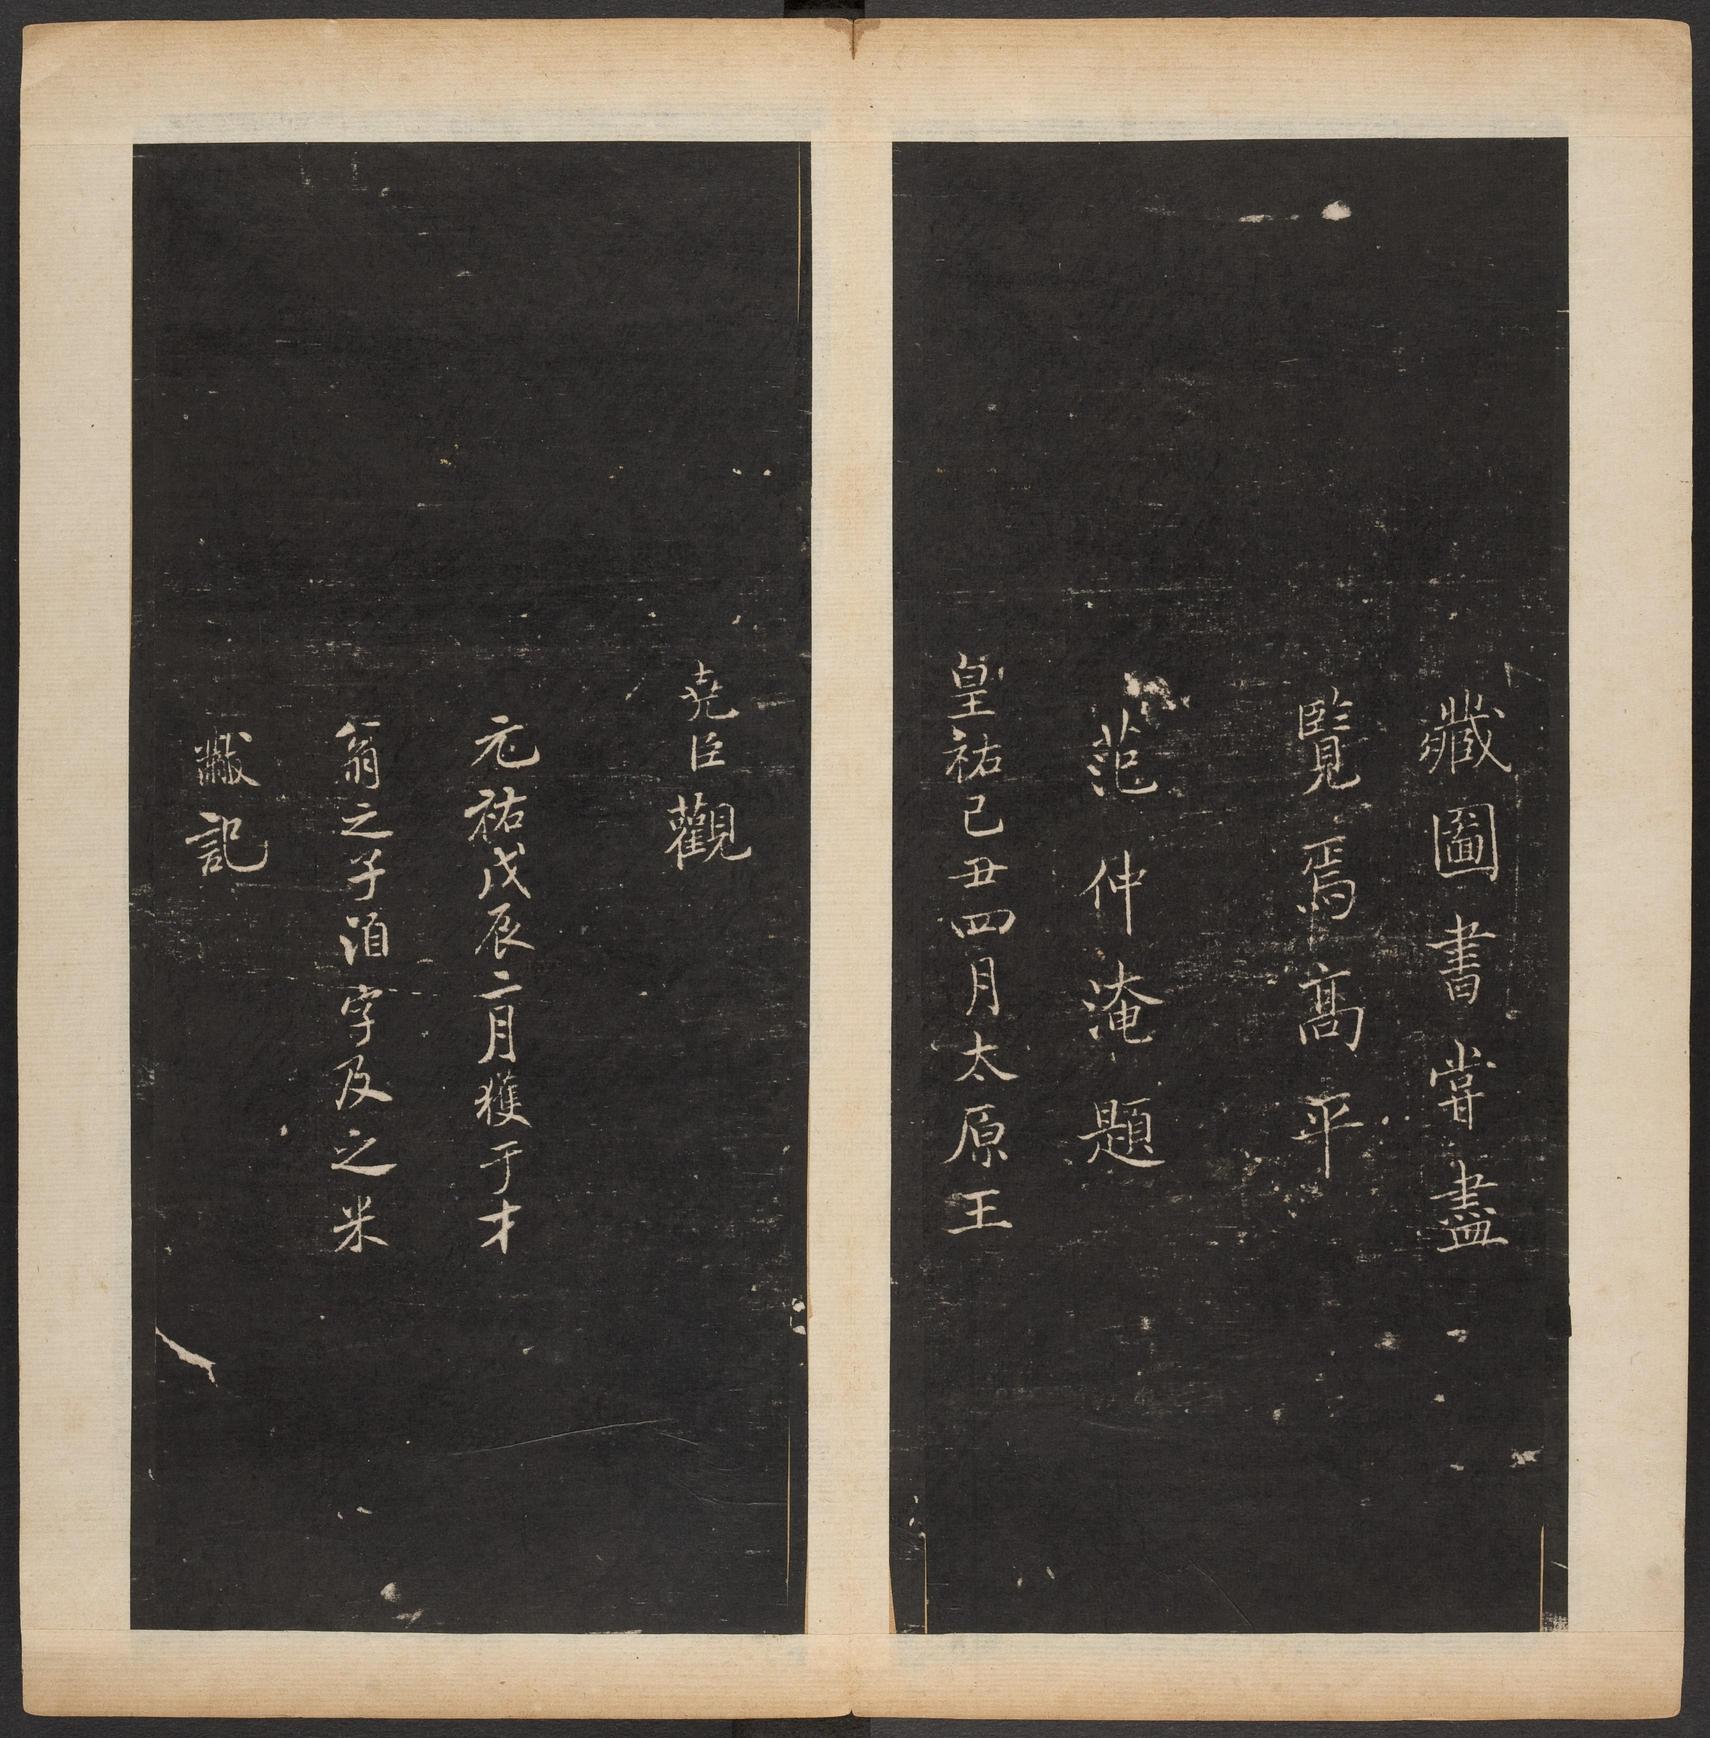 藏圖書嘗盡
覽焉高平
范仲淹題
皇祐己丑四月太原王
堯臣觀
元祐戊辰二月獲于才
翁之子洎字及之米
黻記